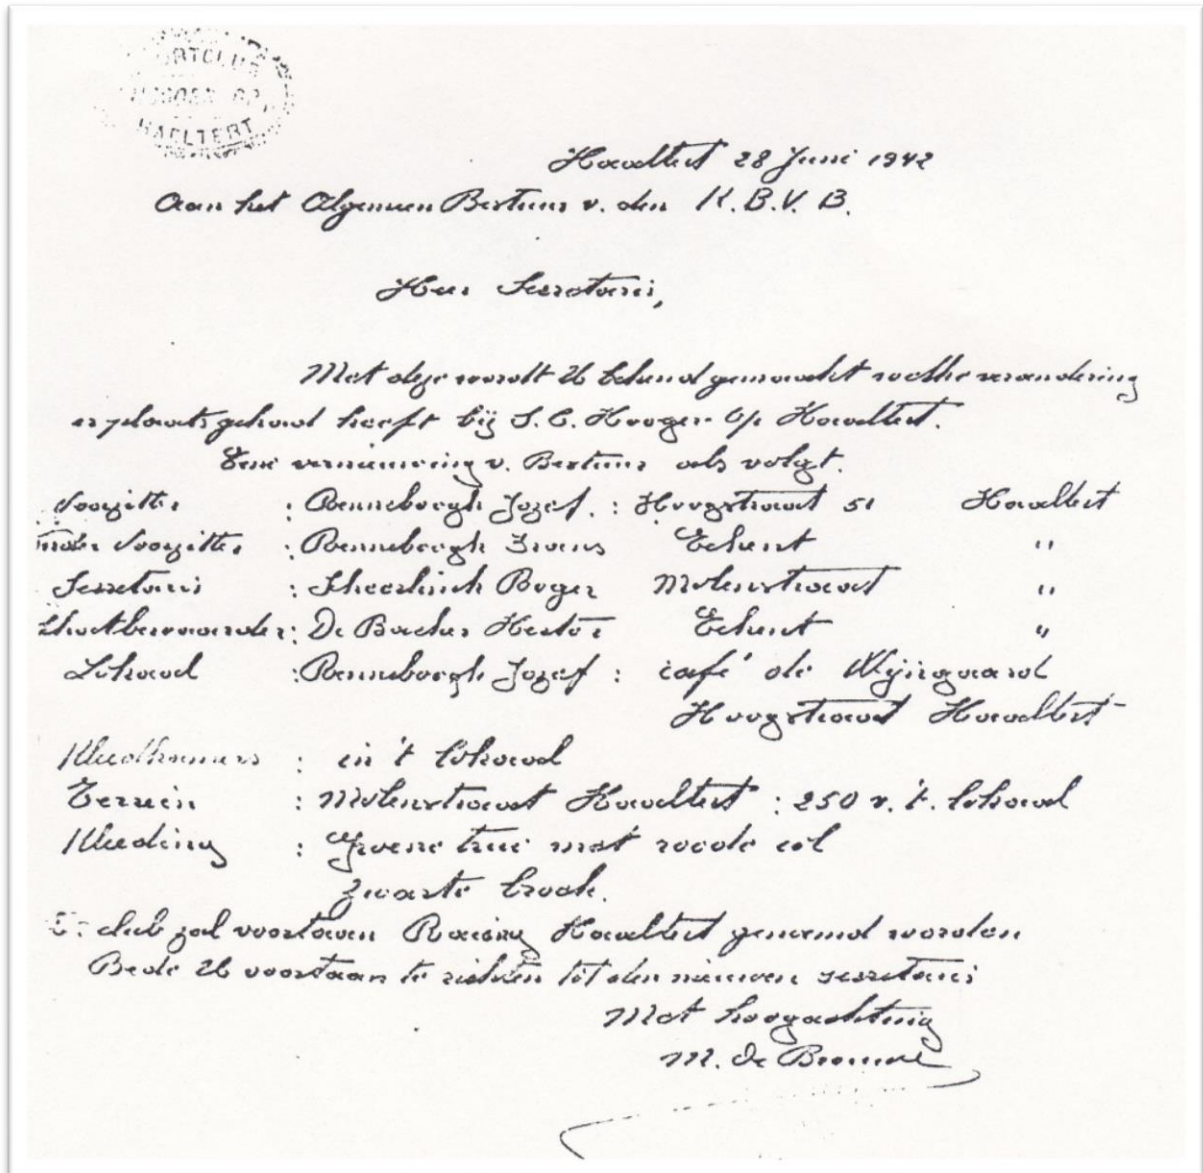 SPORTCLUB
HOOGER OP
HAELTERT
Haaltert 28 Juni 1942
Aan het Algemeen Bestuur v. den K.B.V.B.
Heer Secretaris,
Met deze wordt U bekend gemaakt welke verandering
er plaats gehad heeft bij S.C. Hooger Op Haaltert.
Eene vernieuwing v. Bestuur als volgt.
Voorzitter : Renneboogh Jozef. : Hoogstraat 51 Haaltert
Onder Voorzitter : Renneboogh Frans Ekent "
Secretaris : Scheerlinck Roger Molenstraat "
Schatbewaarder : De Backer Hector Ekent "
Lokaal : Renneboogh Jozef : café de Wijngaard
Hoogstraat Haaltert
Kleedkamers : in 't lokaal
Terrein : Molenstraat Haaltert : 250 v. 't lokaal
Kleeding : Groene trui met roode col
zwarte broek.
De club zal voortaan Racing Haaltert genoemd worden
Bede U voortaan te richten tot den nieuwen secretaris
Met hoogachting
M. De